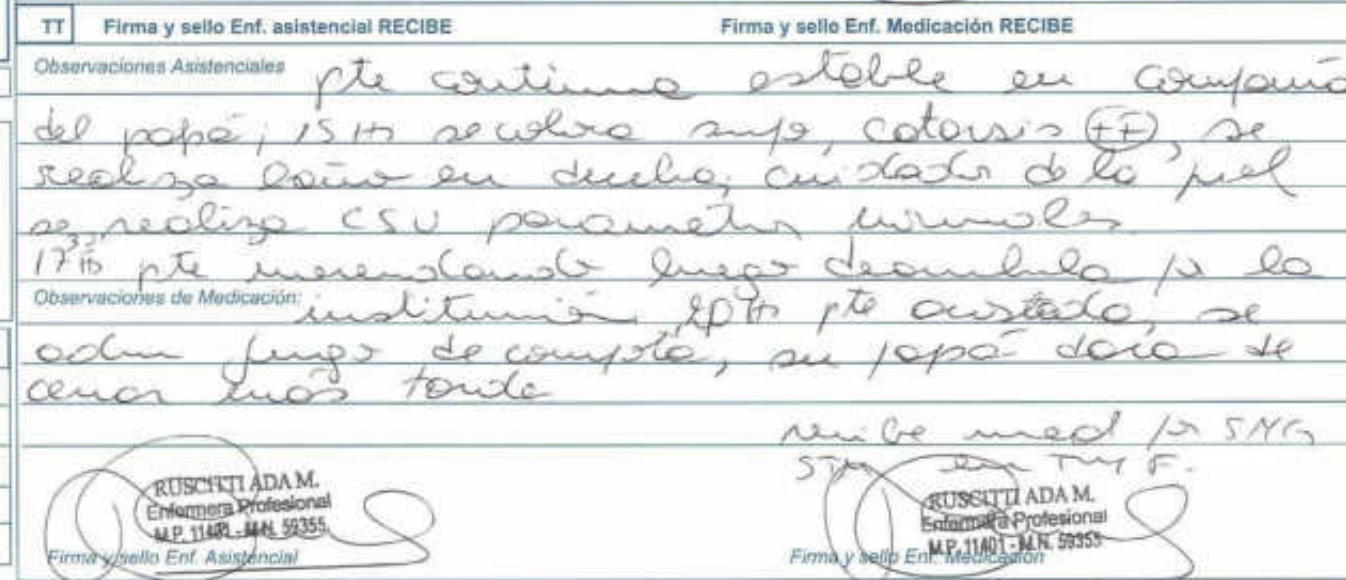 TT Firma y sello Enf. asistencial RECIBE Firma y sello Enf. Medicación RECIBE
Observaciones Asistenciales pte continua estable en compañia
del papá; 15 Hs se colora catarsis (++), se
realiza baño en ducha, cuidados de la piel
se realiza CSV parametros normales
17 30 Hs pte merendando luego deambula p la
Observaciones de Medicación: institución, Hs pte acostado, se
adm jugo de compota, su papá dara de
cenar más tarde
recibe med p SNG
en TM y F.
RUSCITTI ADA M.
Enfermera Profesional
M.P. 11401 - M.N. 59355
Firma y sello Enf. Asistencial
RUSCITTI ADA M.
Enfermera Profesional
M.P. 11401 - M.N. 59355
Firma y sello Enf. Medicación